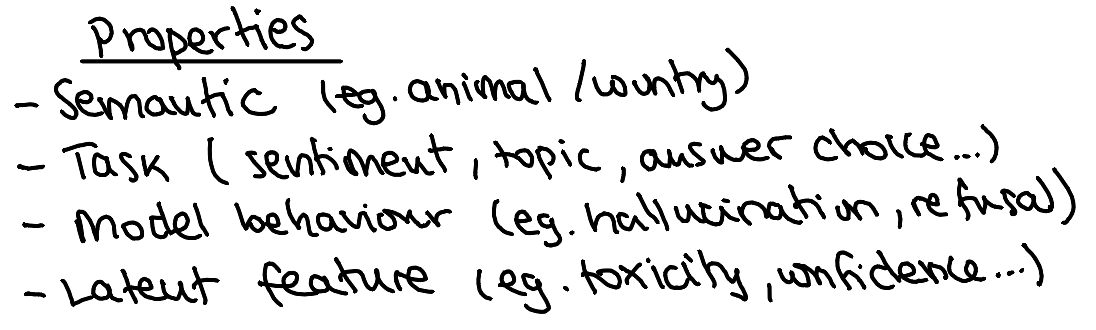 Properties
- Semantic (eg. animal / country)
- Task (sentiment, topic, answer choice...)
- Model behaviour (eg. hallucination, refusal)
- Latent feature (eg. toxicity, confidence...)